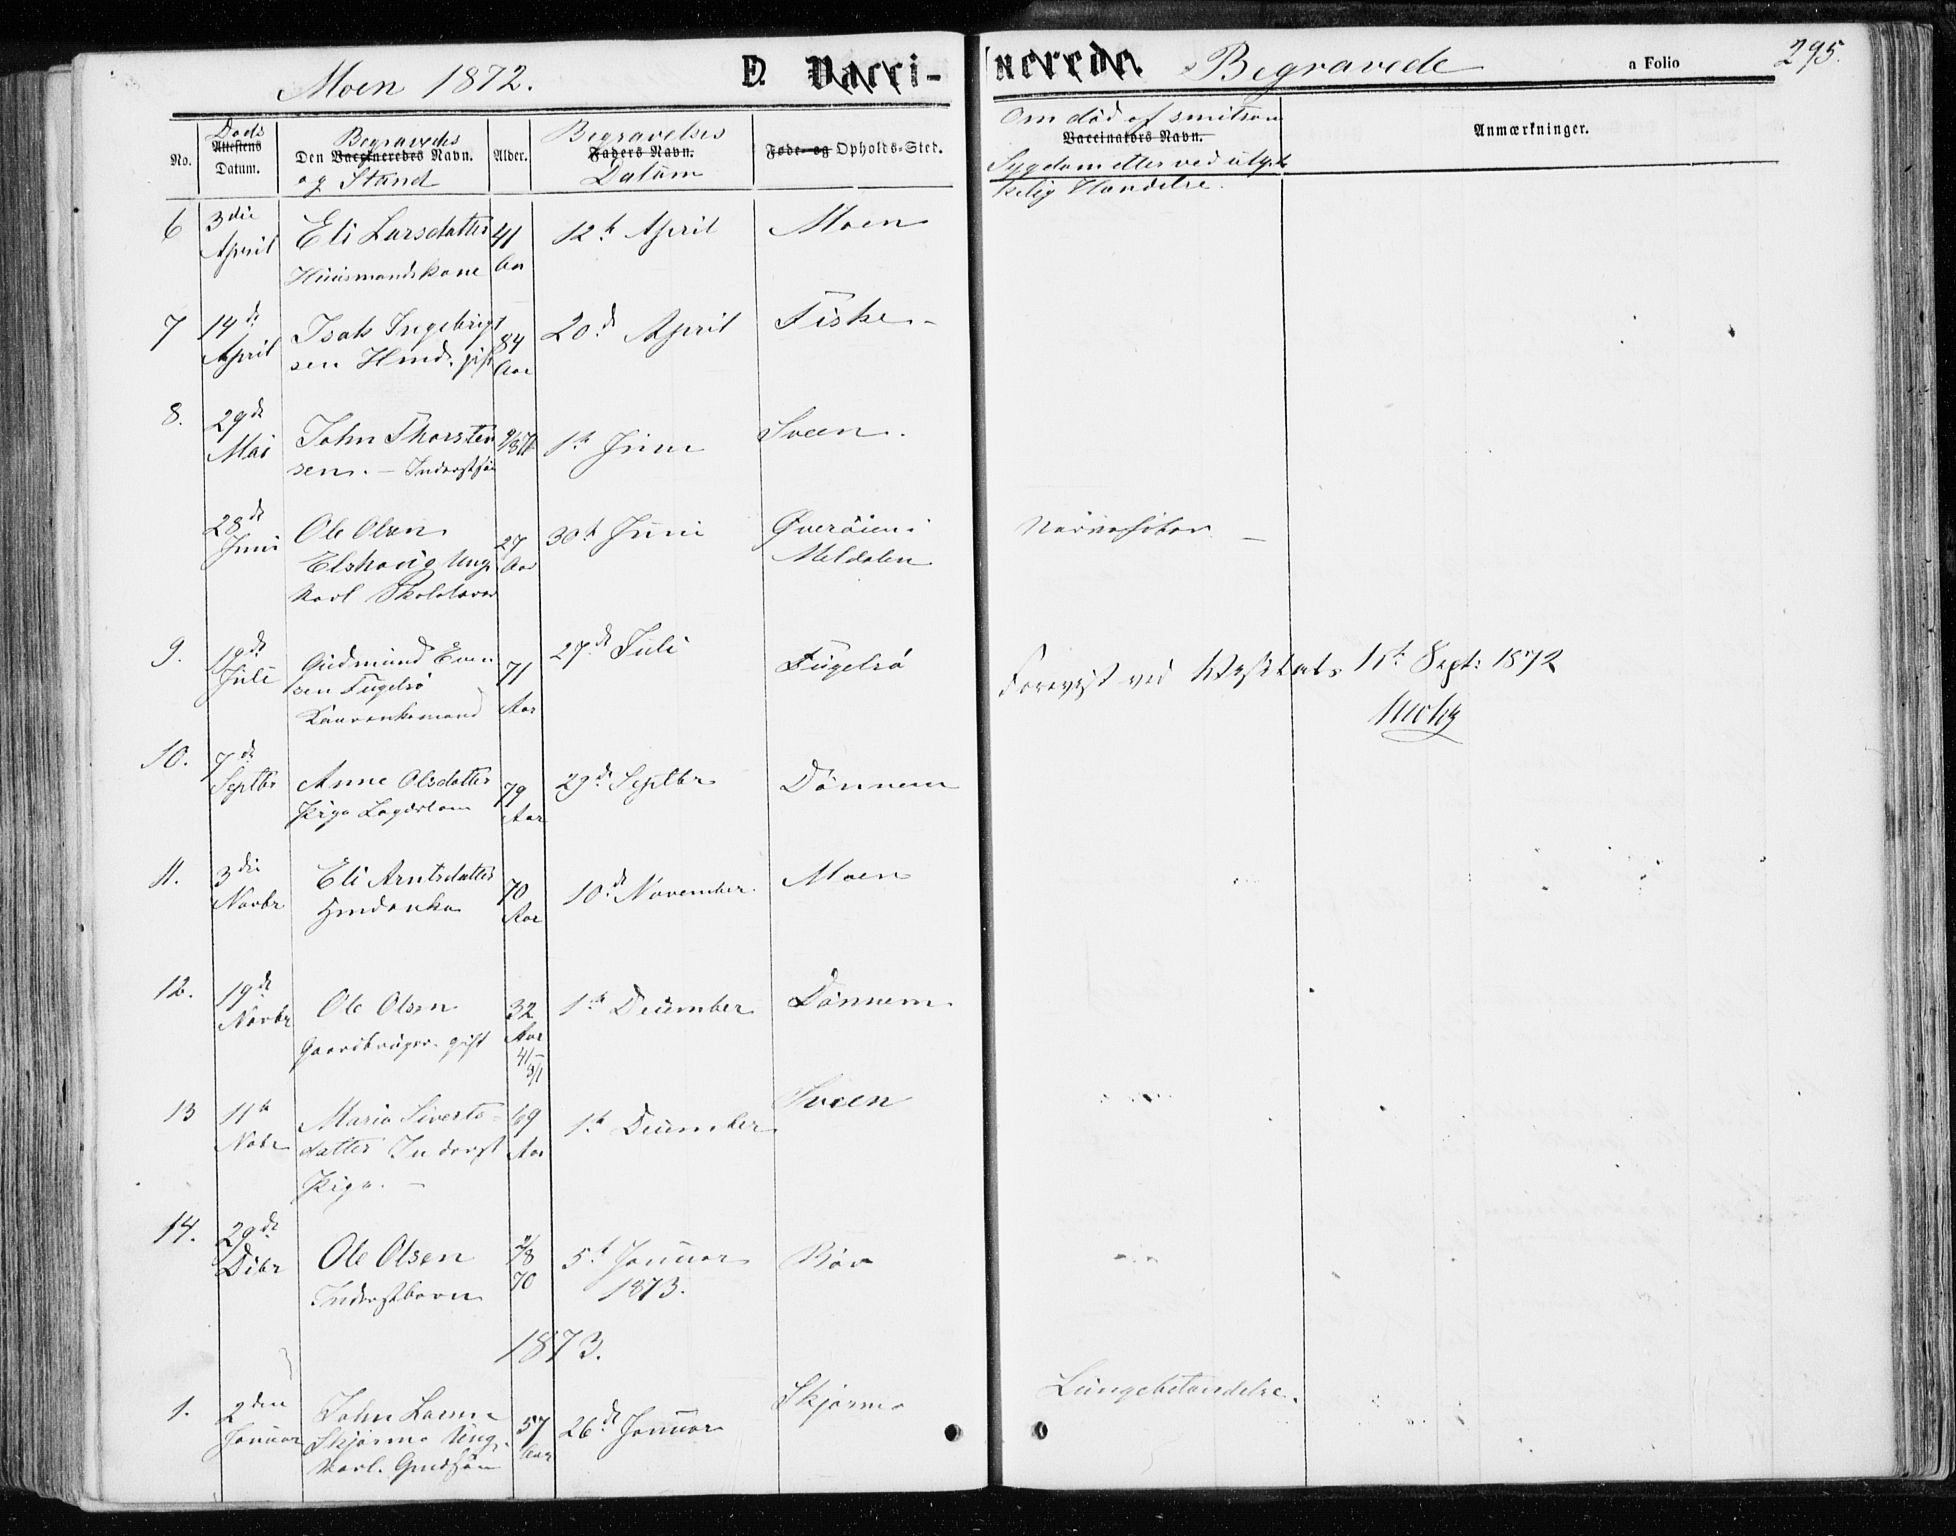 Moen 1872.
D. Vaccinerede. Begravede
a Folio 295.
No.
Døds
Attestens
Datum.
Begravedes
Den Vaccineredes Navn.
og Stand
Alder.
Begravelses
Faders Navn.
Datum
Føde- og Opholds-Sted.
Om död af smitsom
Vaccinators Navn.
Sygdom eller ved ulyk-
kelig Hændelse.
Anmærkninger.
6 3die April
Eli Larsdatter
Huusmandskone
41 Aar
12te April
Moen
7 14de April
Isak Ingebrigt
sen Hmd. gift
84 Aar
20de April
Fiske
8. 29de Mai
John Thorsten
sen.
1te Juni
Sveen.
28de Juni
Ole Olsen
Elshaug Ung
karl Skolelærer
27 Aar
30te Juni
Øverøien i
Meldalen
Nervefeber
9. 19de Juli
Gudmund Even
sen Fugelsö
71 Aar
27de Juli
Fugelsö
Sept: 1872
10. 7de Septbr
Anne Olsdatter
Pige Lægdslem
79 Aar
29de Septbr
Dönnem
11. 3die Novbr
Eli Arntsdatter
70 Aar
10de November
Moen
12. 19de Novbr
Ole Olsen
Gaardbruger gift
32 Aar
1te December
Dönnem
13 11te Nobr
Maria Siverts-
datter Inderst
Pige.
69 Aar
1te December
Sveen
14. 29de Debr
Ole Olsen
Inderstbarn
5te Januar
1873.
Böv
1873.
1. 2den Januar
John Larsen
Skjermo Ung
karl.
57 Aar
26de Januar
Skjermo
Lungebetændelse.